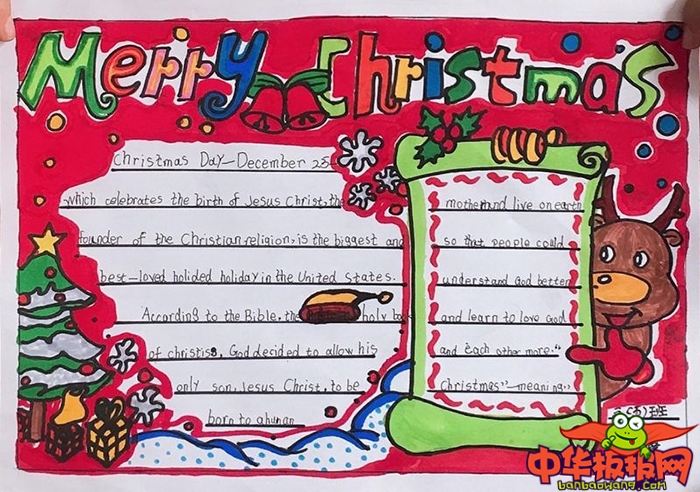 Merry Christmas
Christmas Day—December 25—
which celebrates the birth of Jesus Christ, the
founder of the Christian religion, is the biggest and
best—loved holided holiday in the United States.
According to the Bible, the holy book
of christiss, God decided to allow his
only son, Jesus Christ, to be
born to a human
mother and live on earth
so that people could
understand God better
and learn to love God
and Each other more."
Christmas"—meaning"
班
中华板报网
banbaowang.com